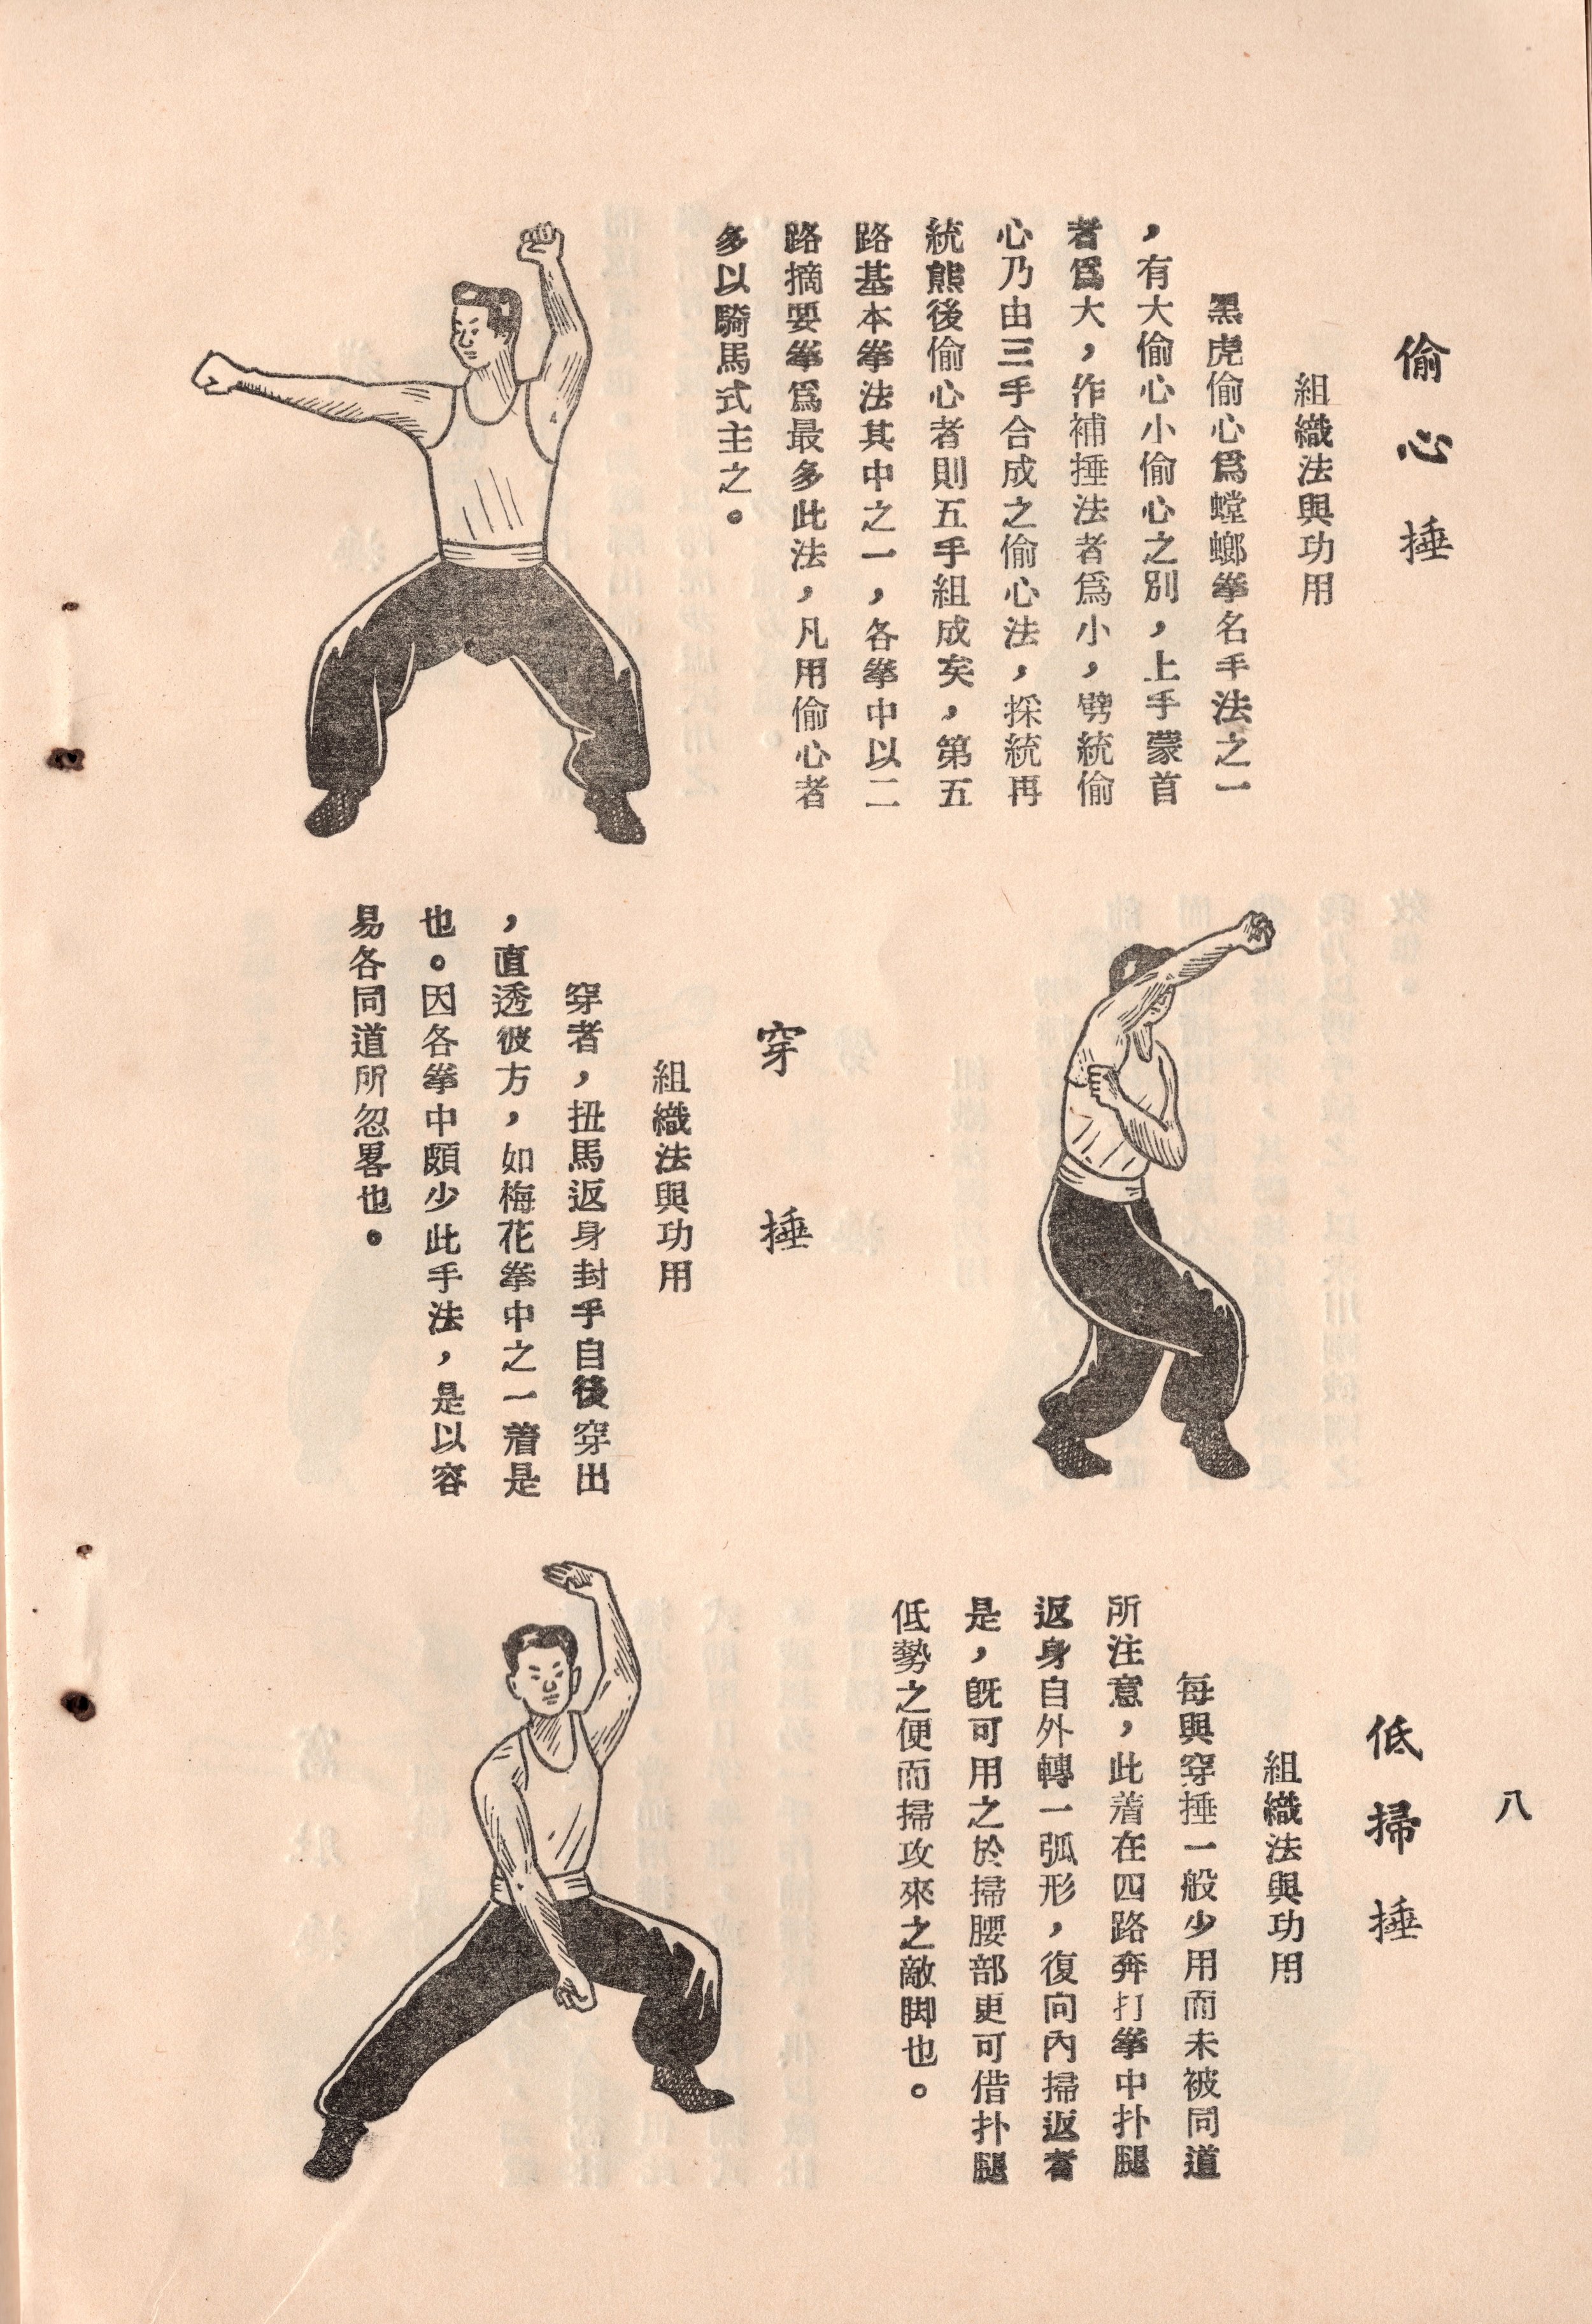 偷心捶
組織法與功用
黑虎偷心爲螳螂拳名手法之一
，有大偷心小偷心之別，上手蒙首
者爲大，作補捶法者爲小，劈統偷
心乃由三手合成之偷心法，採統再
統熊後偷心者則五手組成矣，第五
路基本拳法其中之一，各拳中以二
路摘要拳爲最多此法，凡用偷心者
多以騎馬式主之。
穿捶
組織法與功用
穿者，扭馬返身封手自後穿出
，直透彼方，如梅花拳中之一着是
也。因各拳中頗少此手法，是以容
易各同道所忽畧也。
八
低掃捶
組織法與功用
每與穿捶一般少用而未被同道
所注意，此着在四路奔打拳中扑腿
返身自外轉一弧形，復向內掃返者
是，旣可用之於掃腰部更可借扑腿
低勢之便而掃攻來之敵脚也。